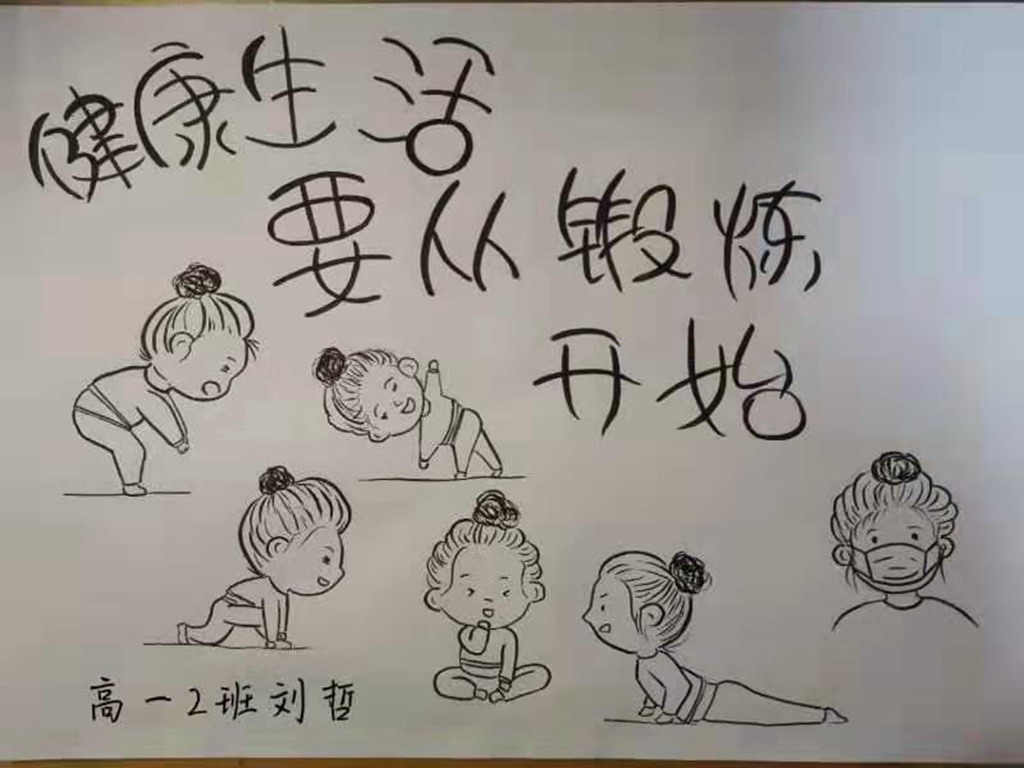 健康生活
要从锻炼
开始
高一2班刘哲